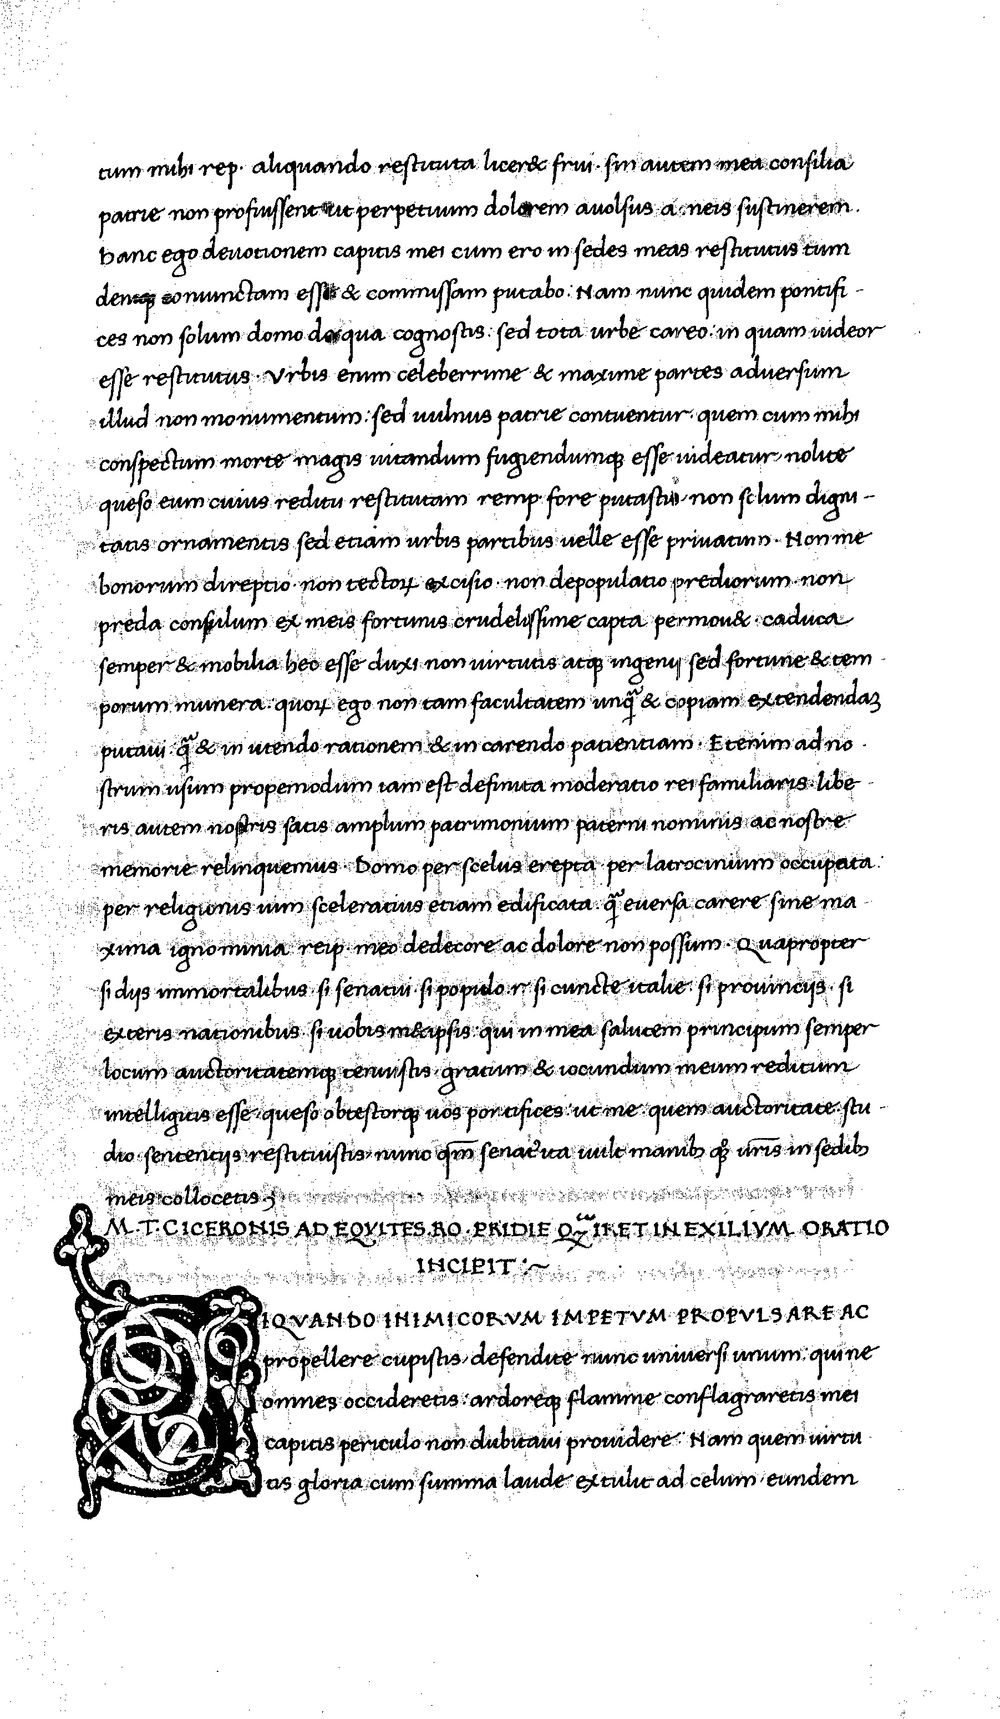 tum mihi rep. aliquando restituta licer& frui. sin autem mea consilia
patrie non profuissent ut perpetuum dolorem auolsus a. neis sustinerem.
hanc ego deuotionem capitis mei cum ero in sedes meas restitutus tum
deniq; coniunctam esse & commissam putabo. Nam nunc quidem pontifi-
ces non solum domo de qua cognostis. sed tota urbe careo. in quam uideor
esse restitutus. Vrbis enim celeberrime & maxime partes aduersum
illud non monumentum. sed uulnus patrie contuentur. quem cum mihi
conspectum morte magis uitandum fugiendumq; esse uideatur. nolite
queso eum cuius reditu restitutam remp. fore putastis. non solum digni-
tatis ornamentis sed etiam urbis partibus uelle esse priuatum. Non me
bonorum direptio. non tectoꝝ excisio. non depopulatio prediorum. non
preda consulum ex meis fortunis crudelissime capta permou&. caduca
semper & mobilia hec esse duxi non uirtutis atq; ingenij sed fortune & tem
porum munera. quoꝝ ego non tam facultatem unq̃ & copiam extendendaꝫ
putaui. q̃ & in utendo rationem & in carendo patientiam. Etenim ad no-
strum usum propemodum iam est definita moderatio rei familiaris. libe-
ris autem nostris satis amplum patrimonium paterni nominis ac nostre
memorie relinquemus. Domo per scelus erepta. per latrocinium occupata.
per religionis uim sceleratius etiam edificata. q̃ euersa carere sine ma
xima ignominia. reip. meo dedecore ac dolore non possum. Quapropter
si dijs immortalibus. si senatui. si populo r̄. si cuncte italie. si prouincijs. si
exteris nationibus. si uobis m&ipsis. qui in mea salutem principum semper
locum auctoritatemq; tenuistis. gratum & iocundum meum reditum
intelligitis esse. queso obtestorq; uos pontifices. ut me. quem auctoritate. stu-
dio. sentencijs restituistis. nunc qm̄ senat᾽ ita uult manibꝫ q̃; ur̄is in sedibꝫ
meis collocetis;
M. T. CICERONIS AD EQVITES. RO. PRIDIE QꝫIRET IN EXILIVM. ORATIO
INCIPIT :~
SIQVANDO INIMICORVM IMPETVM PROPVLSARE AC
propellere cupistis. defendite nunc uniuersi unum. qui ne
omnes occideretis. ardoreq; flamme conflagraretis mei
capitis periculo non dubitaui prouidere. Nam quem uirtu
tis gloria cum summa laude extulit ad celum. eundem